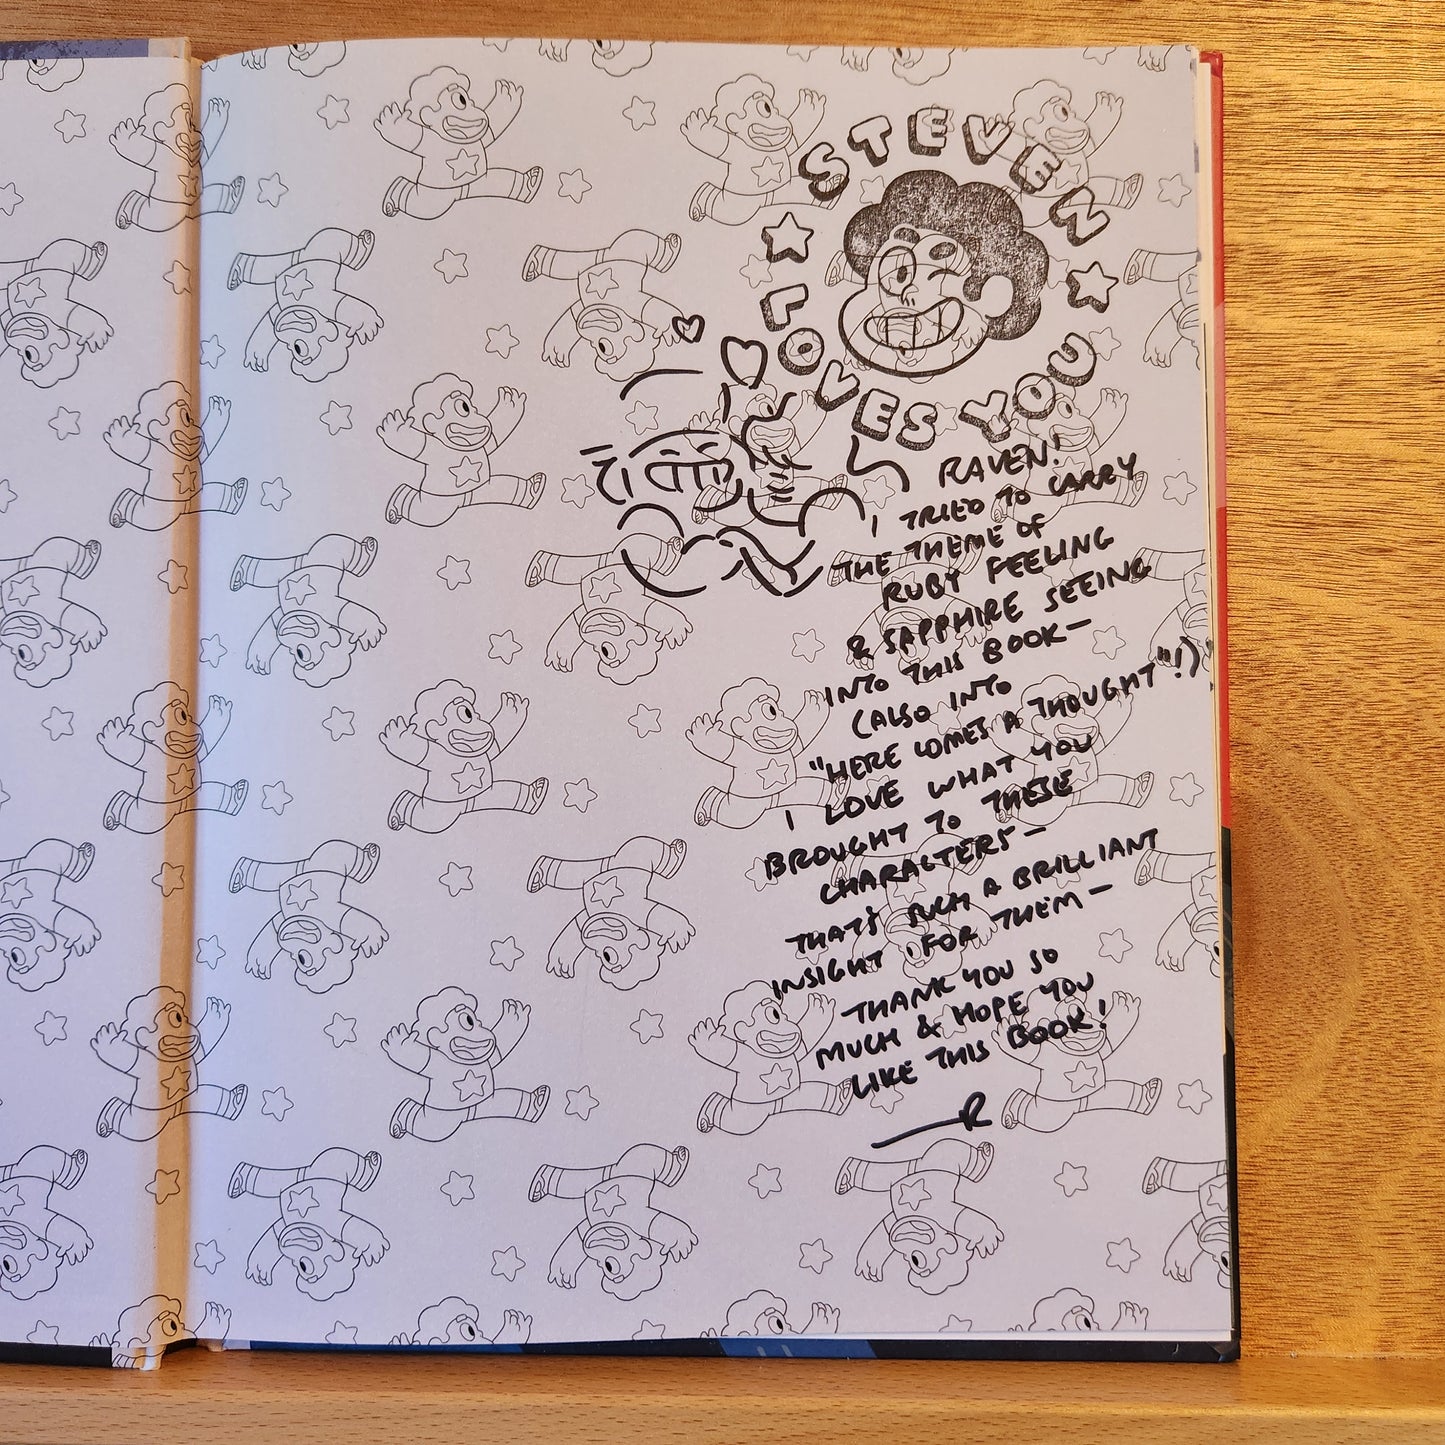 STEVEN
LOVES YOU
RAVEN!
I TRIED TO CARRY
THE THEME OF
RUBY FEELING
& SAPPHIRE SEEING
INTO THIS BOOK—
(ALSO INTO
"HERE COMES A THOUGHT"!)
I LOVE WHAT YOU
BROUGHT TO THESE
CHARACTERS—
THAT'S SUCH A BRILLIANT
INSIGHT FOR THEM—
THANK YOU SO
MUCH & HOPE YOU
LIKE THIS BOOK!
—R